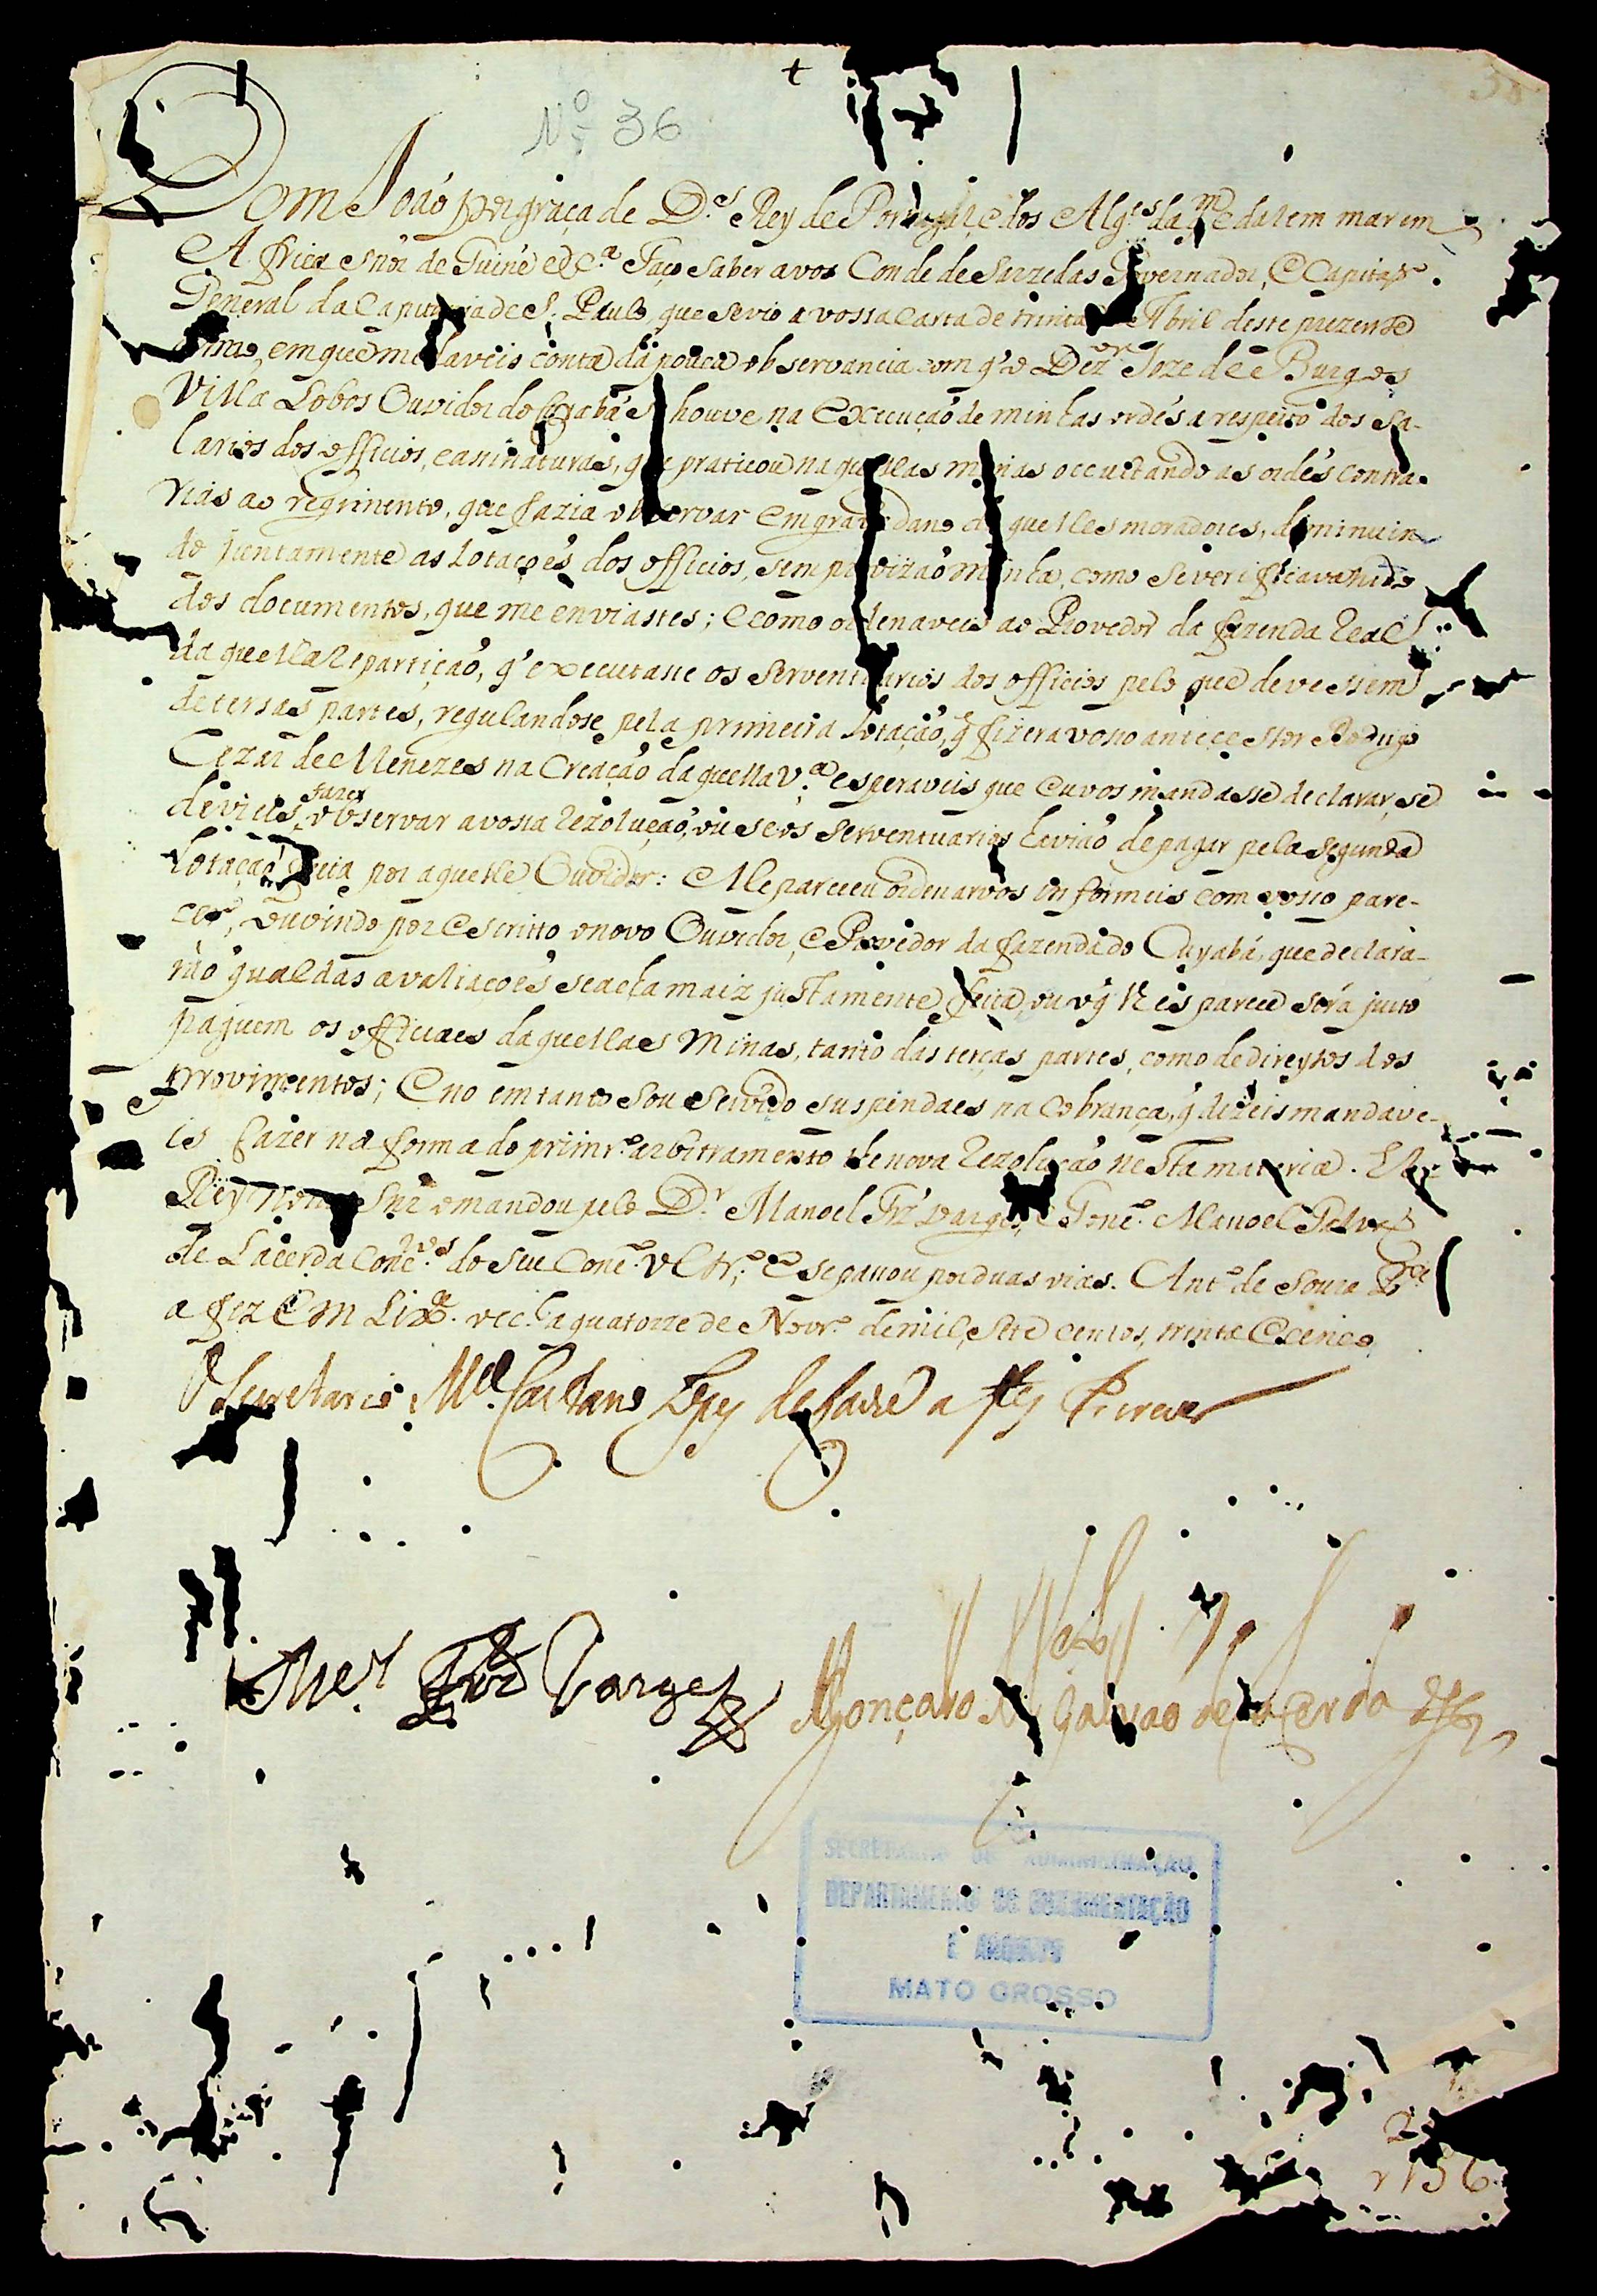 38
Nº 36
Dom Joaõ por graça de D.s Rey de Portugal e dos Alg.es daq.m e dalem mar em
Africa Sñor de Guiné e &c.a Faço saber a vos Conde de Sarzedas Governador, e Capitaõ
General da Capitania de S. Paulo, que se vio a vossa carta de trinta de Abril deste prezente
anno, em que me daveis conta da pouca observancia com q' o Dez.or Joze de Burgos
Villa Lobos Ouvidor do Cuyabá se houve na execuçaõ de minhas ordẽs a respeito dos sa-
larios dos officios, e asinaturas, que praticou naquellas minas occultando as ordẽs contra-
rias ao regimento, que fazia observar em grave dano daquelles moradores, diminuin
do juntamente as lotaçoẽs dos officios, sem provizaõ minha, como se verificava
dos documentos, que me enviastes; e como ordenaveis ao Provedor da fazenda Real
daquella repartiçaõ, q' executasse os serventuarios dos officios pelo que devessem
de tersas partes, regulandose pela primeira lotaçaõ, q̃ fizera vosso antecessor Rodrigo
Cezar de Menezes na creaçaõ daquella V.a esperaveis que eu vos mandasse declarar, se
devieis fazer observar a vossa rezoluçaõ, ou se os serventuarios haviaõ de pagar pela segunda
lotaçaõ feita por aquelle Ouvidor: Me pareceu ordenarvos informeis com vosso pare-
cer, ouvindo por escritto o novo Ouvidor, e Provedor da fazenda do Cuyabá, que declara-
raõ qual das avaliacoẽs se acha maiz justamente feita, ou o q̃ lhes parece será justo
paguem os officiaes daquellas Minas, tanto das terças partes, como de direytos dos
provimentos; e no emtanto sou servido suspendaes na cobrança, q̃ dizeis mandave-
is fazer na forma do primr.o arbitramento the nova rezoluçaõ nesta materia. El
Rey nosso Sñr o mandou pelo D.r Manoel Frz' Varges, e Gonc.o Manoel Galvaõ
de Lacerda Conc.ros do seu Conc.o Ultr.o e se passou por duas vias. Ant.o de Souza Pr.a
a fez em Lix.a occ.al a quatorze de Novr.o de mil, sete centos, trinta e cinco
O Secretario M.el Caetano Lopes de Lavre a fez escrever
M.el Frz Varges
Gonçalo M.el Galvaõ de Lacerda
SECRETARIA DE ADMINISTRAÇÃO
DEPARTAMENTO DE DOCUMENTAÇÃO
E ARQUIVO
MATO GROSSO